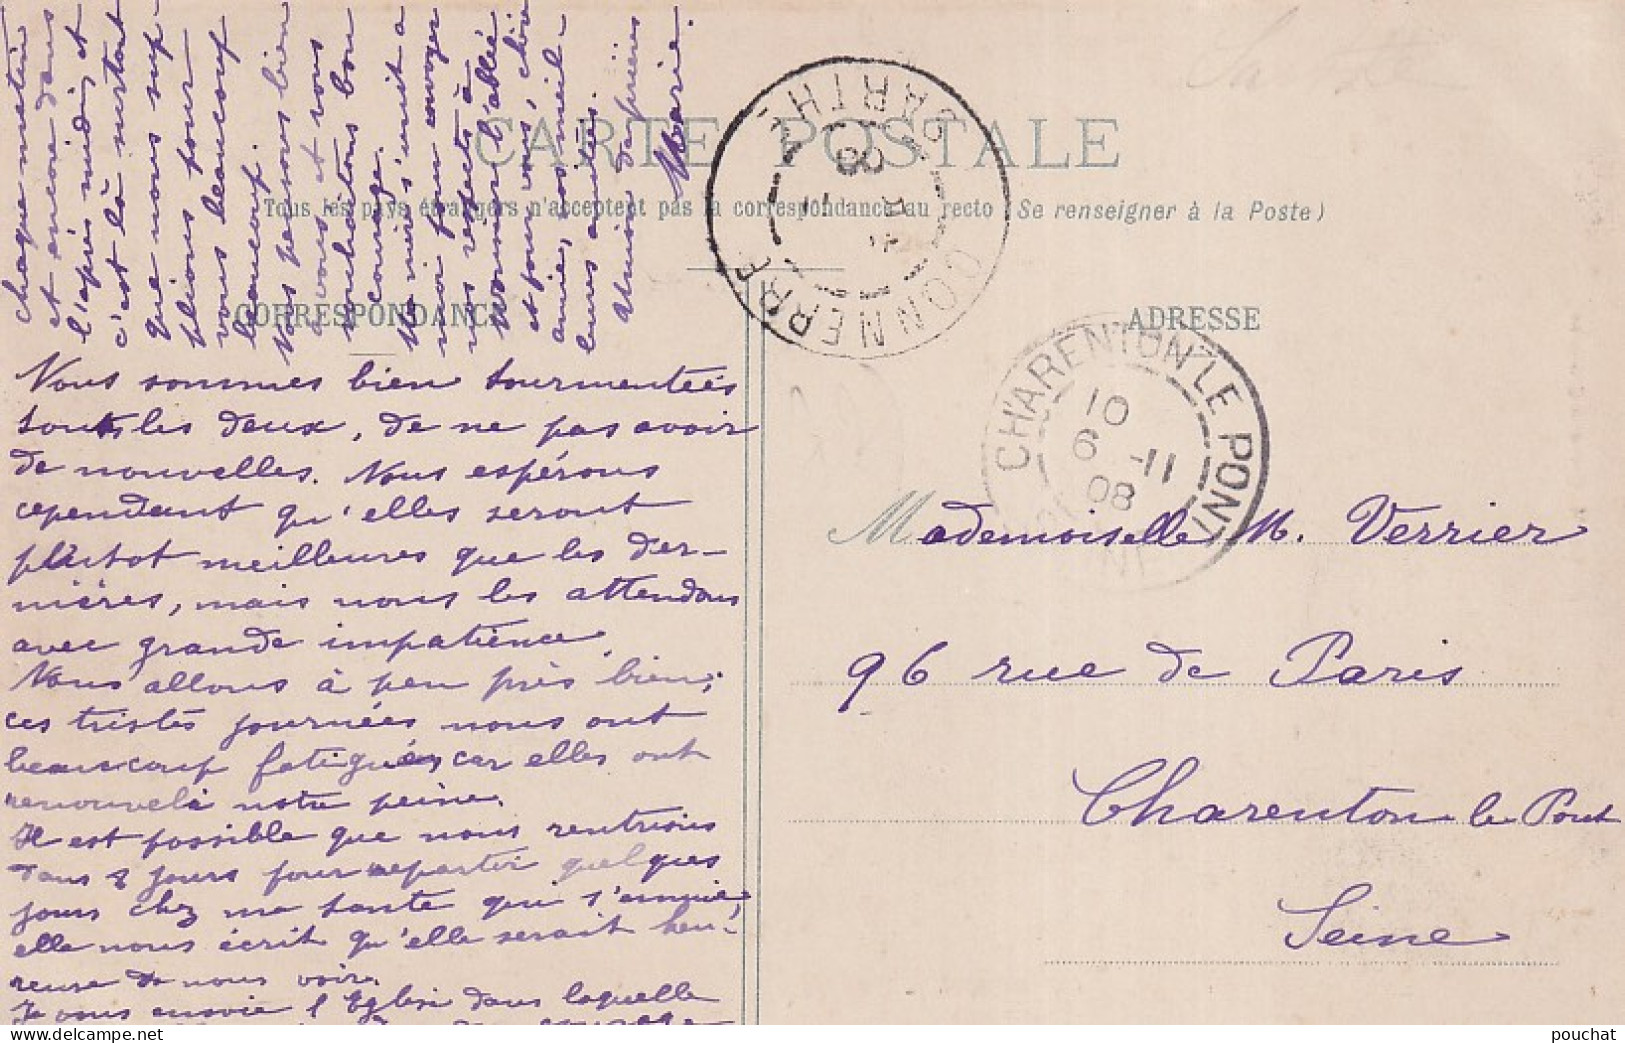 CARTE POSTALE
Tous les pays étrangers n'acceptent pas la correspondance au recto (Se renseigner à la Poste)
CORRESPONDANCE
ADRESSE
Nous sommes bien tourmentées
toutes les deux, de ne pas avoir
de nouvelles. Nous espérons
cependant qu'elles seront
plutot meilleures que les der-
nières, mais nous les attendons
avec grande impatience.
Nous allons à peu près bien;
ces tristes journées nous ont
beaucoup fatiguées, car elles ont
renouvelé notre peine.
Il est possible que nous rentrions
dans 8 jours pour repartir quelques
jours chez ma tante qui s'ennuie,
elle nous écrit qu'elle serait heu-
reuse de nous voir.
Je vous envoie l'Eglise dans laquelle
chaque matin
et encore dans
l'après midi, et
c'est là surtout
que nous sup-
plions pour
vous beaucoup
beaucoup.
Nous pensons bien
à vous et vous
souhaitons bon
courage.
Ma mère s'unit à
moi pour envoyer
nos respects à
Monsieur l'abbé
et pour vous, chère
amie, nos meil-
leures amitiés.
Union de prières
Marie.
BONNERBLE
SARTHE
08
CHARENTON LE PONT
10
6 -11
08
Mademoiselle M. Verrier
96 rue de Paris
Charenton le Pont
Seine
Sarthe
pouchat